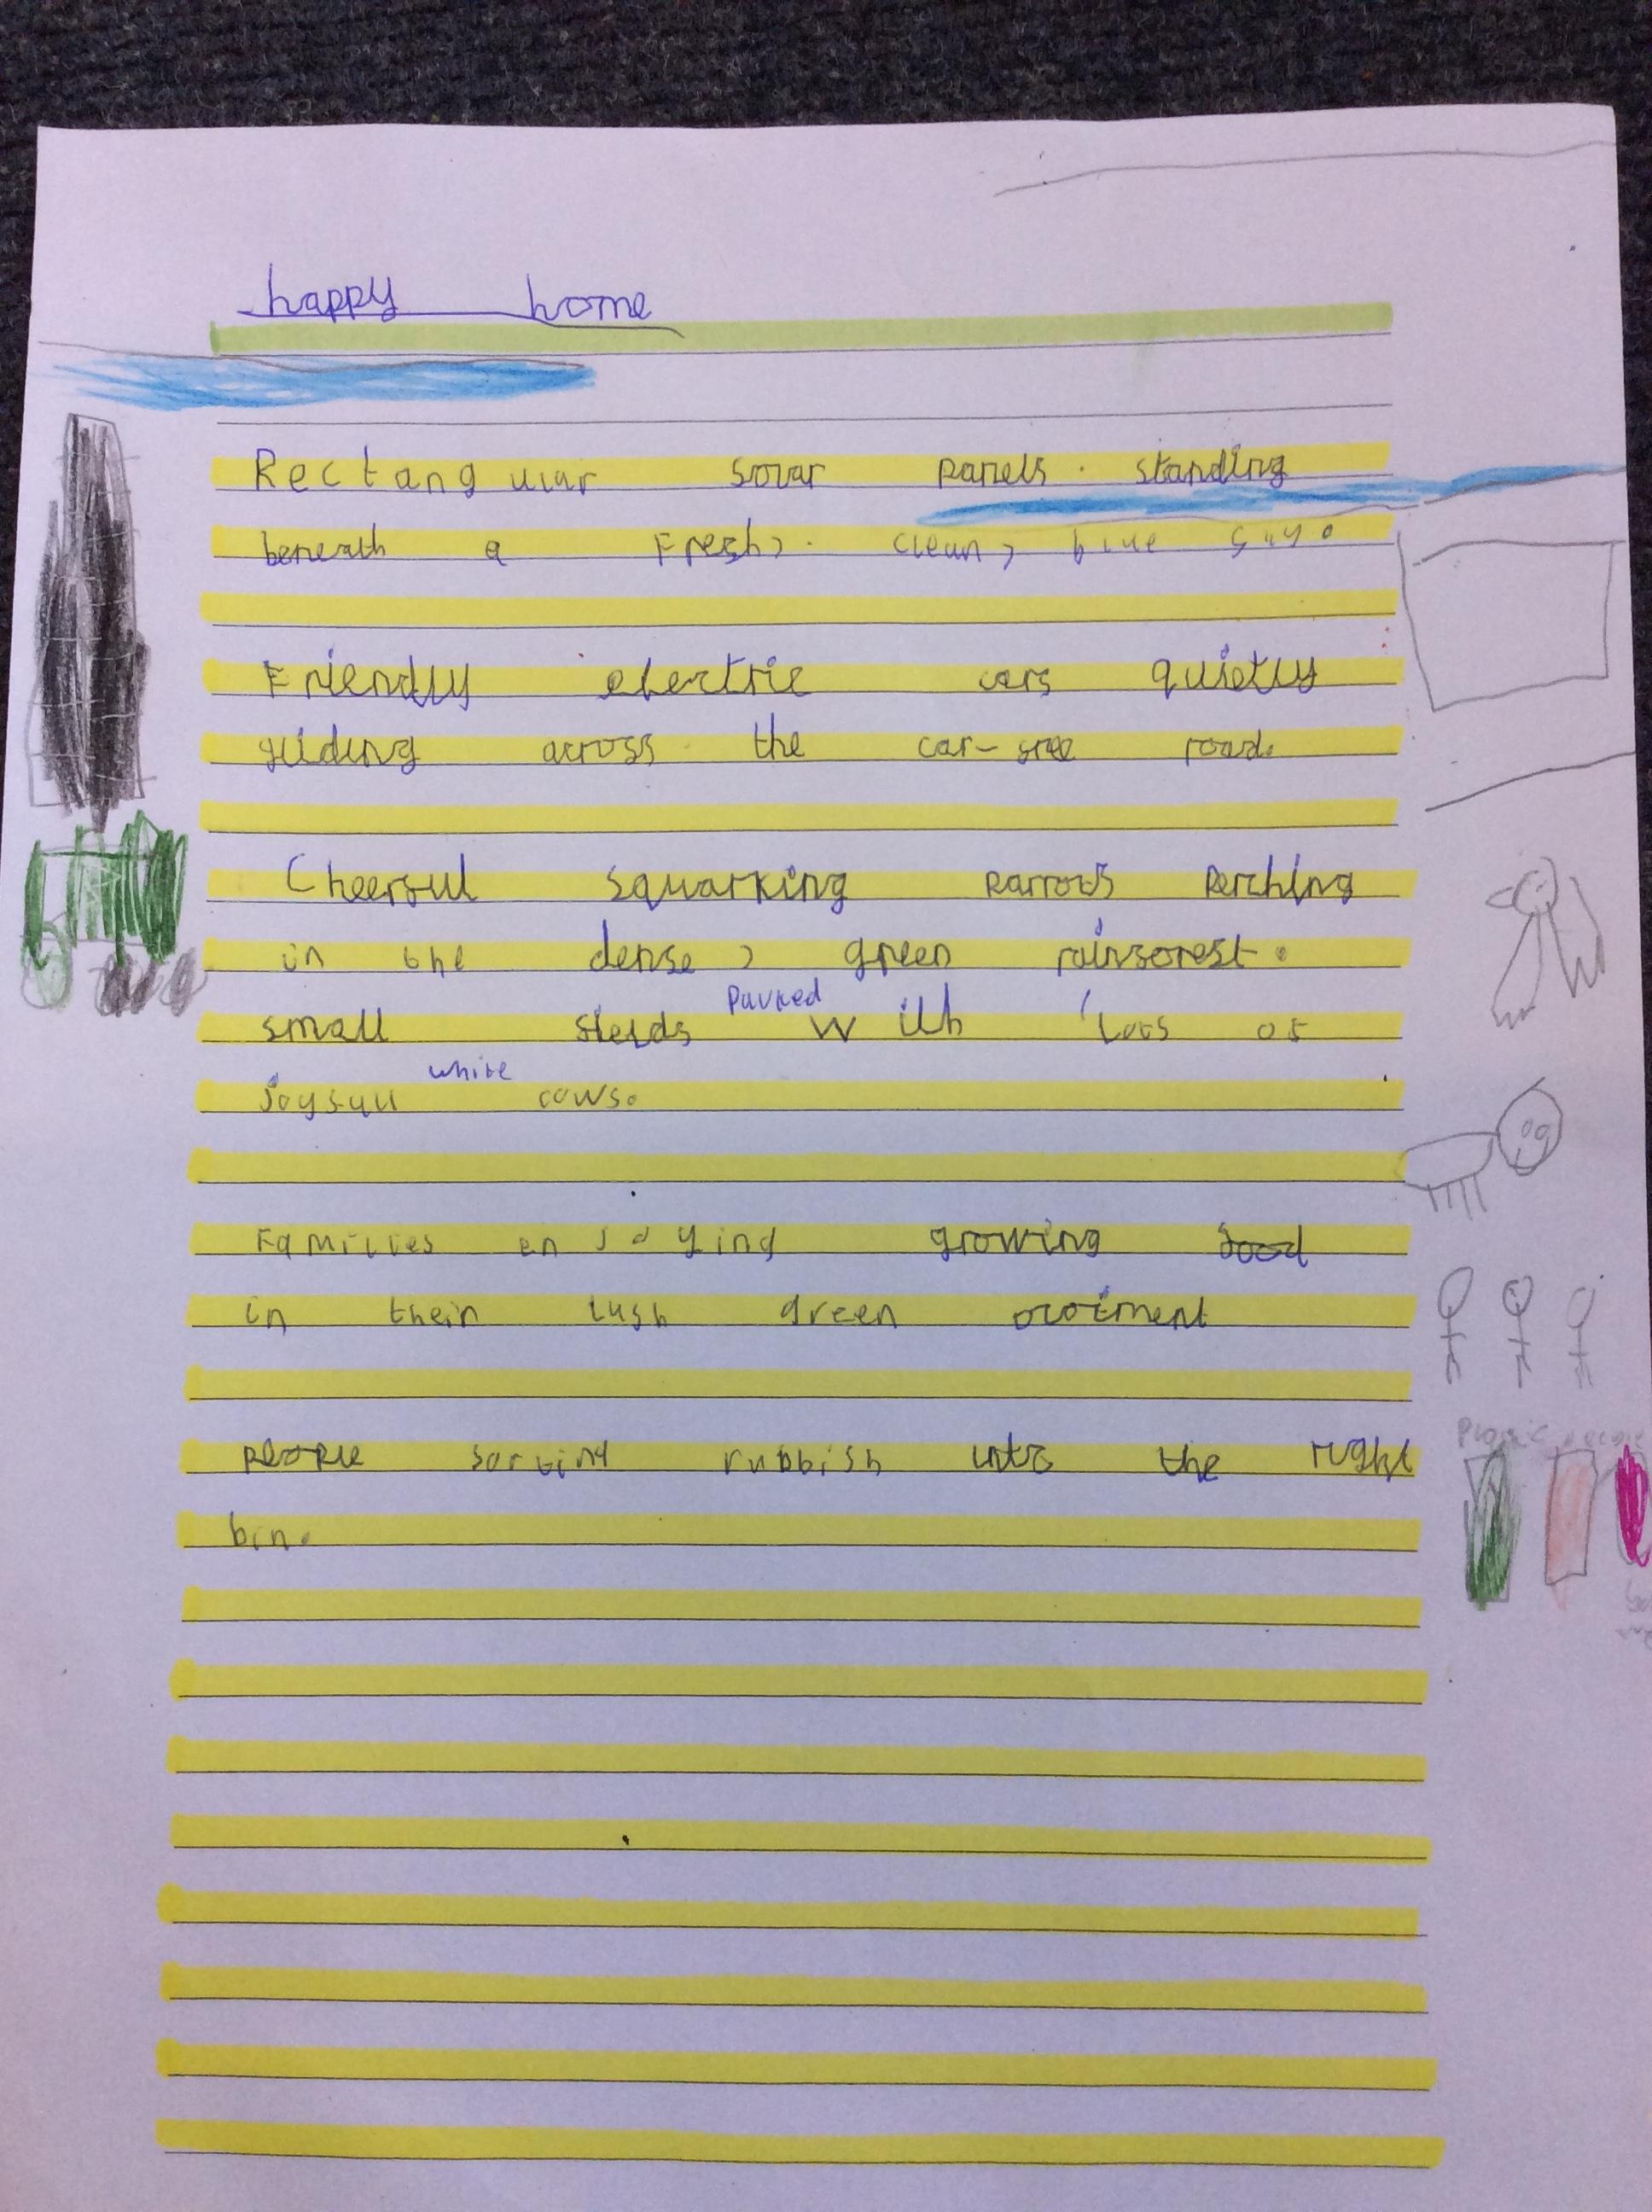 happy home
Rectangular solar panels standing
beneath a Fresh, clean, blue
Friendly electric cars quietly
gliding across the car-free road.
Cheerful squarking parrots perching
in the dense, green rainforest.
small fields packed with lots of
joyful white cows.
Families enjoying growing food
in their lush green
people sorting rubbish into the right
bin.